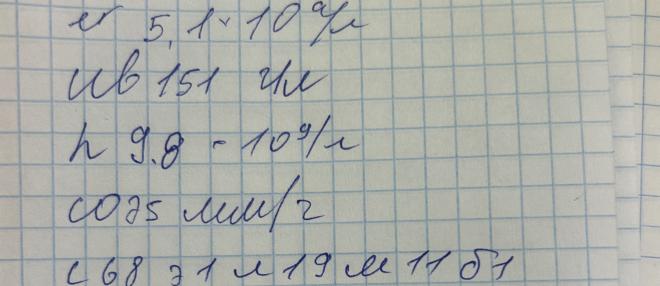 5,1 · 10⁹/л
Нв 151 г/л
L 9.8 · 10⁹/л
СОЭ 5 мм/г
с 68 э1 л19 м 11 б1